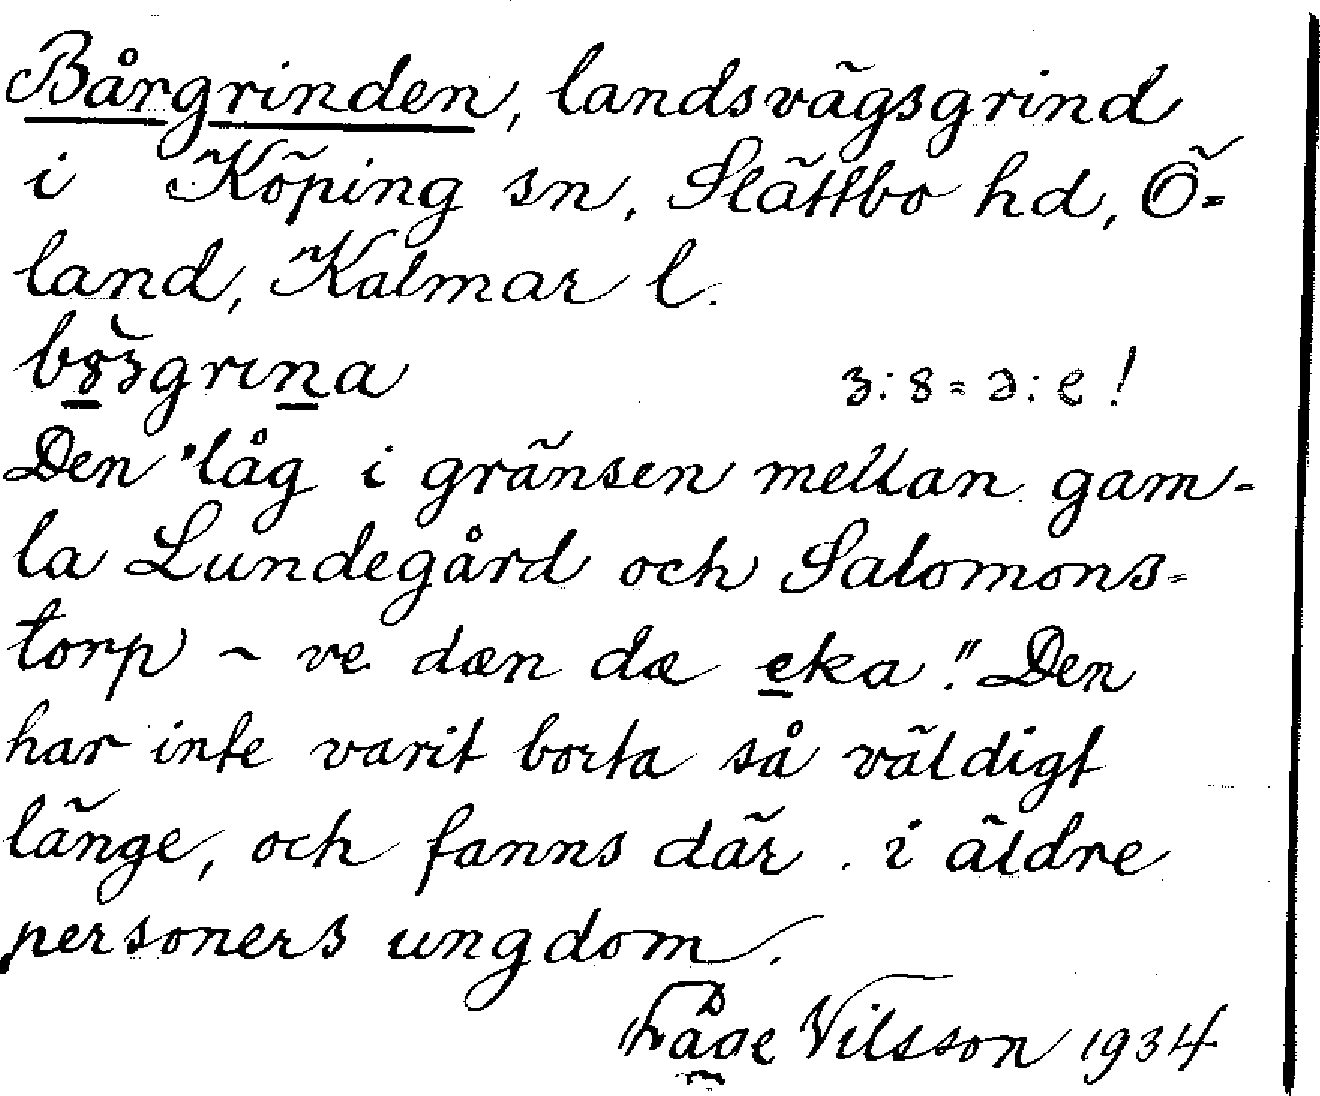 Bårgrinden, landsvägsgrind
i Köping sn, Slättbo hd, Ö-
land, Kalmar l.
Den "låg i gränsen mellan gam-
la Lundegård och Salomons-
torp ~ ve dæn dæ eka." Den
har inte varit borta så väldigt
länge, och fanns där i äldre
personers ungdom.
Nilsson 1934